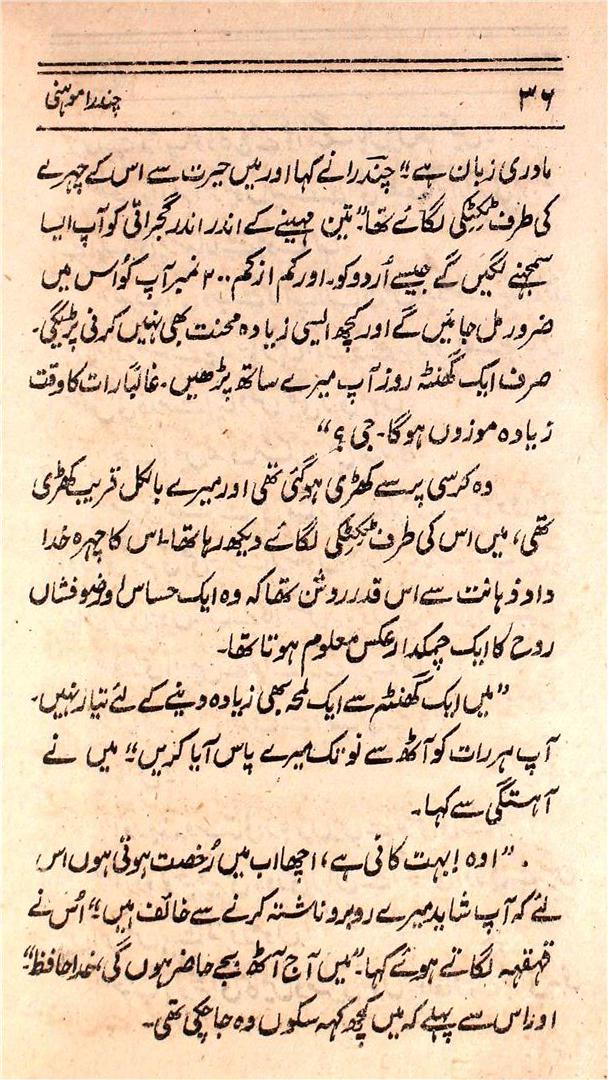 ۳۶ چندرا موہنی
مادری زبان ہے“ چندرا نے کہا اور میں حیرت سے اس کے چہرے
کی طرف ٹکٹکی لگائے تھا۔”تین مہینے کے اندر اندر گجراتی کو آپ ایسا
سمجھنے لگیں گے جیسے اُردو کو۔ اور کم از کم ۲۰۰ نمبر آپ کو اس میں
ضرور مل جائیں گے اور کچھ ایسی زیادہ محنت بھی نہیں کرنی پڑیگی۔
صرف ایک گھنٹہ روز آپ میرے ساتھ پڑھیں۔ غالباً رات کا وقت
زیادہ موزوں ہو گا۔ جی؟“
وہ کرسی پر سے کھڑی ہو گئی تھی اور میرے بالکل قریب کھڑی
تھی، میں اس کی طرف ٹکٹکی لگائے دیکھ رہا تھا۔ اس کا چہرہ خدا
داد ذہانت سے اس قدر روشن تھا کہ وہ ایک حساس اور ضو فشاں
روح کا ایک چمکدار عکس معلوم ہوتا تھا۔
”میں ایک گھنٹہ سے ایک لمحہ بھی زیادہ دینے کے لئے تیار نہیں۔
آپ ہر رات کو آٹھ سے نو تک میرے پاس آیا کریں“ میں نے
آہستگی سے کہا۔
”اوہ! بہت کافی ہے، اچھا اب میں رُخصت ہوتی ہوں اس
لئے کہ آپ شاید میرے روبرو ناشتہ کرنے سے خائف ہیں“ اُس نے
قہقہہ لگاتے ہوئے کہا۔”میں آج آٹھ بجے حاضر ہوں گی، خدا حافظ“۔
اور اس سے پہلے کہ میں کچھ کہہ سکوں وہ جا چکی تھی۔